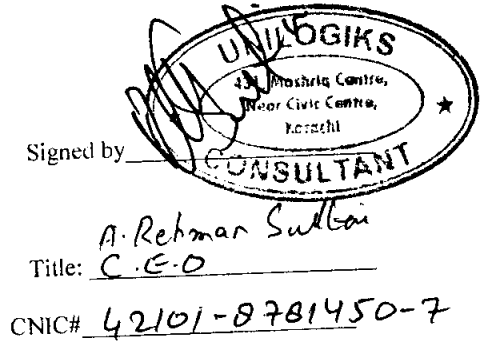 UNILOGIKS
431, Mashriq Centre,
Near Civic Centre,
Karachi
CONSULTANT
Signed by
A. Rehman Sultan
Title: C.E.O
CNIC# 42101-8781450-7